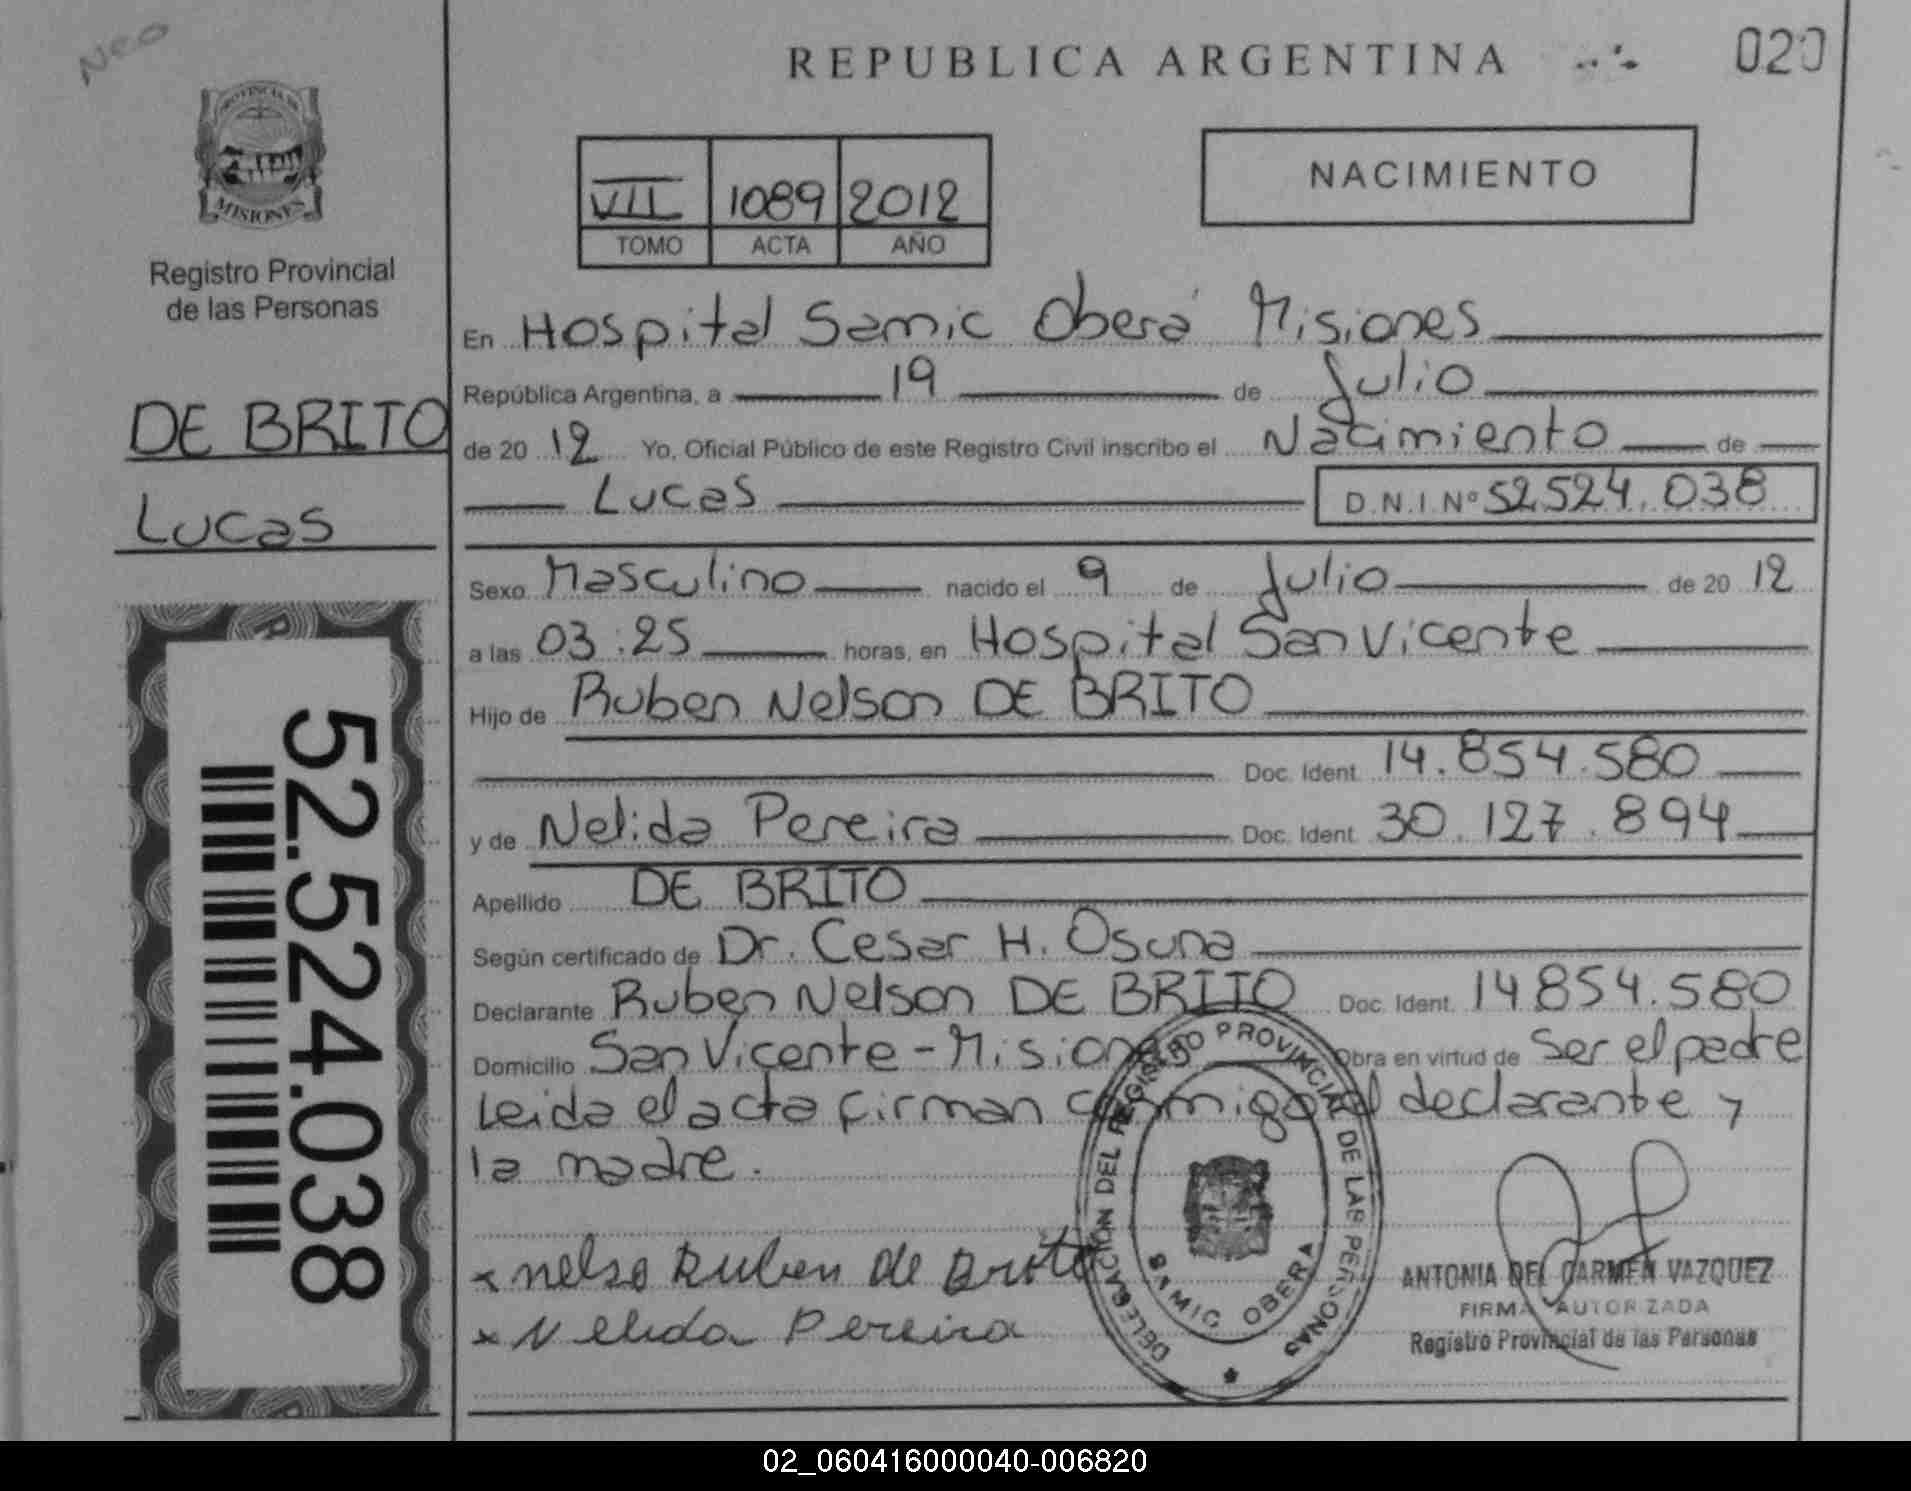 Neo
PROVINCIA DE
MISIONES
Registro Provincial
de las Personas
DE BRITO
Lucas
52.524.038
REPUBLICA ARGENTINA
020
VII 1089 2012
TOMO ACTA AÑO
NACIMIENTO
En Hospital Samic Oberá Misiones
República Argentina, a 19 de Julio
de 20 12 Yo, Oficial Público de este Registro Civil inscribo el Nacimiento de
Lucas D.N.I.Nº 52524.038
Sexo Masculino nacido el 9 de Julio de 20 12
a las 03:25 horas, en Hospital San Vicente
Hijo de Ruben Nelson DE BRITO
Doc. Ident. 14.854.580
y de Nelida Pereira Doc. Ident. 30.127.894
Apellido DE BRITO
Según certificado de Dr. Cesar H. Osuna
Declarante Ruben Nelson DE BRITO Doc. Ident. 14854.580
Domicilio San Vicente - Misiones Obra en virtud de Ser el padre
Leida el acta firman conmigo el declarante y
la madre.
x nelso Ruben de Brito
x Nelida Pereira
DELEGACION DEL REGISTRO PROVINCIAL DE LAS PERSONAS
SAMIC OBERA
ANTONIA DEL CARMEN VAZQUEZ
FIRMA AUTORIZADA
Registro Provincial de las Personas
02_060416000040-006820